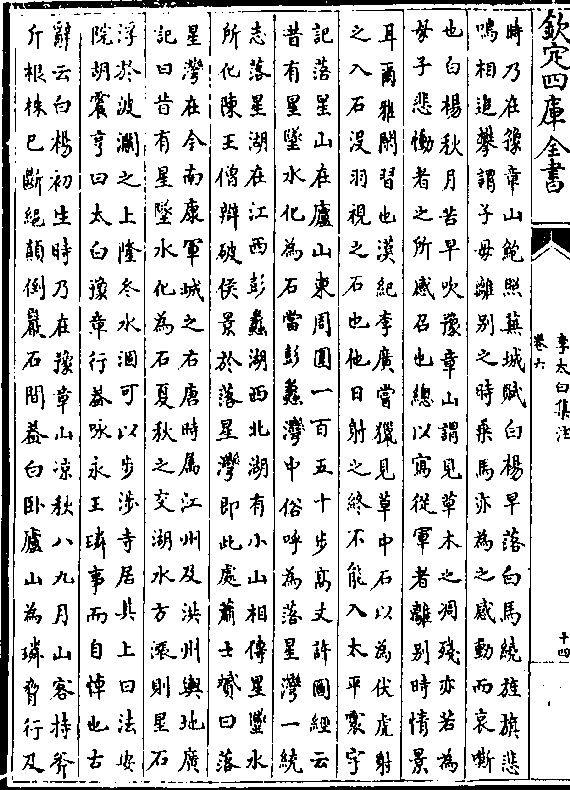 欽定四庫全書
李太白集注
卷六
十四
時乃在豫章山鮑照蕪城賦白楊早落白馬繞旌旗悲
鳴相追攀謂子母離别之時乘馬亦為之感動而哀嘶
也白楊秋月苦早吹豫章山謂見草木之凋殘亦若為
母子悲慟者之所感召也總以寫從軍者離别時情景
耳爾雅閑習也漢紀李廣嘗獵見草中石以為伏虎射
之入石没羽視之石也他日射之終不能入太平寰宇
記落星山在廬山東周圍一百五十步髙丈許圖經云
昔有星墜水化為石當彭蠡灣中俗呼為落星灣一統
志落星湖在江西彭蠡湖西北湖有小山相傳星墜水
所化陳王僧辯破侯景於落星灣即此處蕭士贇曰落
星灣在今南康軍城之右唐時屬江州及洪州輿地廣
記曰昔有星墜水化為石夏秋之交湖水方漲則星石
浮於波瀾之上隆冬水涸可以步涉寺居其上曰法安
院胡震亨曰太白豫章行葢咏永王璘事而自悼也古
辭云白楊初生時乃在豫章山凉秋八九月山客持斧
斤根株已斷絶顛倒巖石間葢白卧廬山為璘脅行及